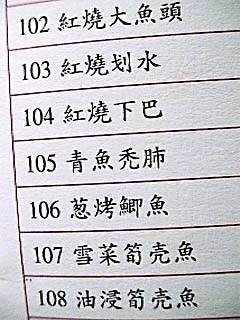 102 紅燒大魚頭
103 紅燒划水
104 紅燒下巴
105 青魚禿肺
106 葱烤鯽魚
107 雪菜筍壳魚
108 油浸筍壳魚